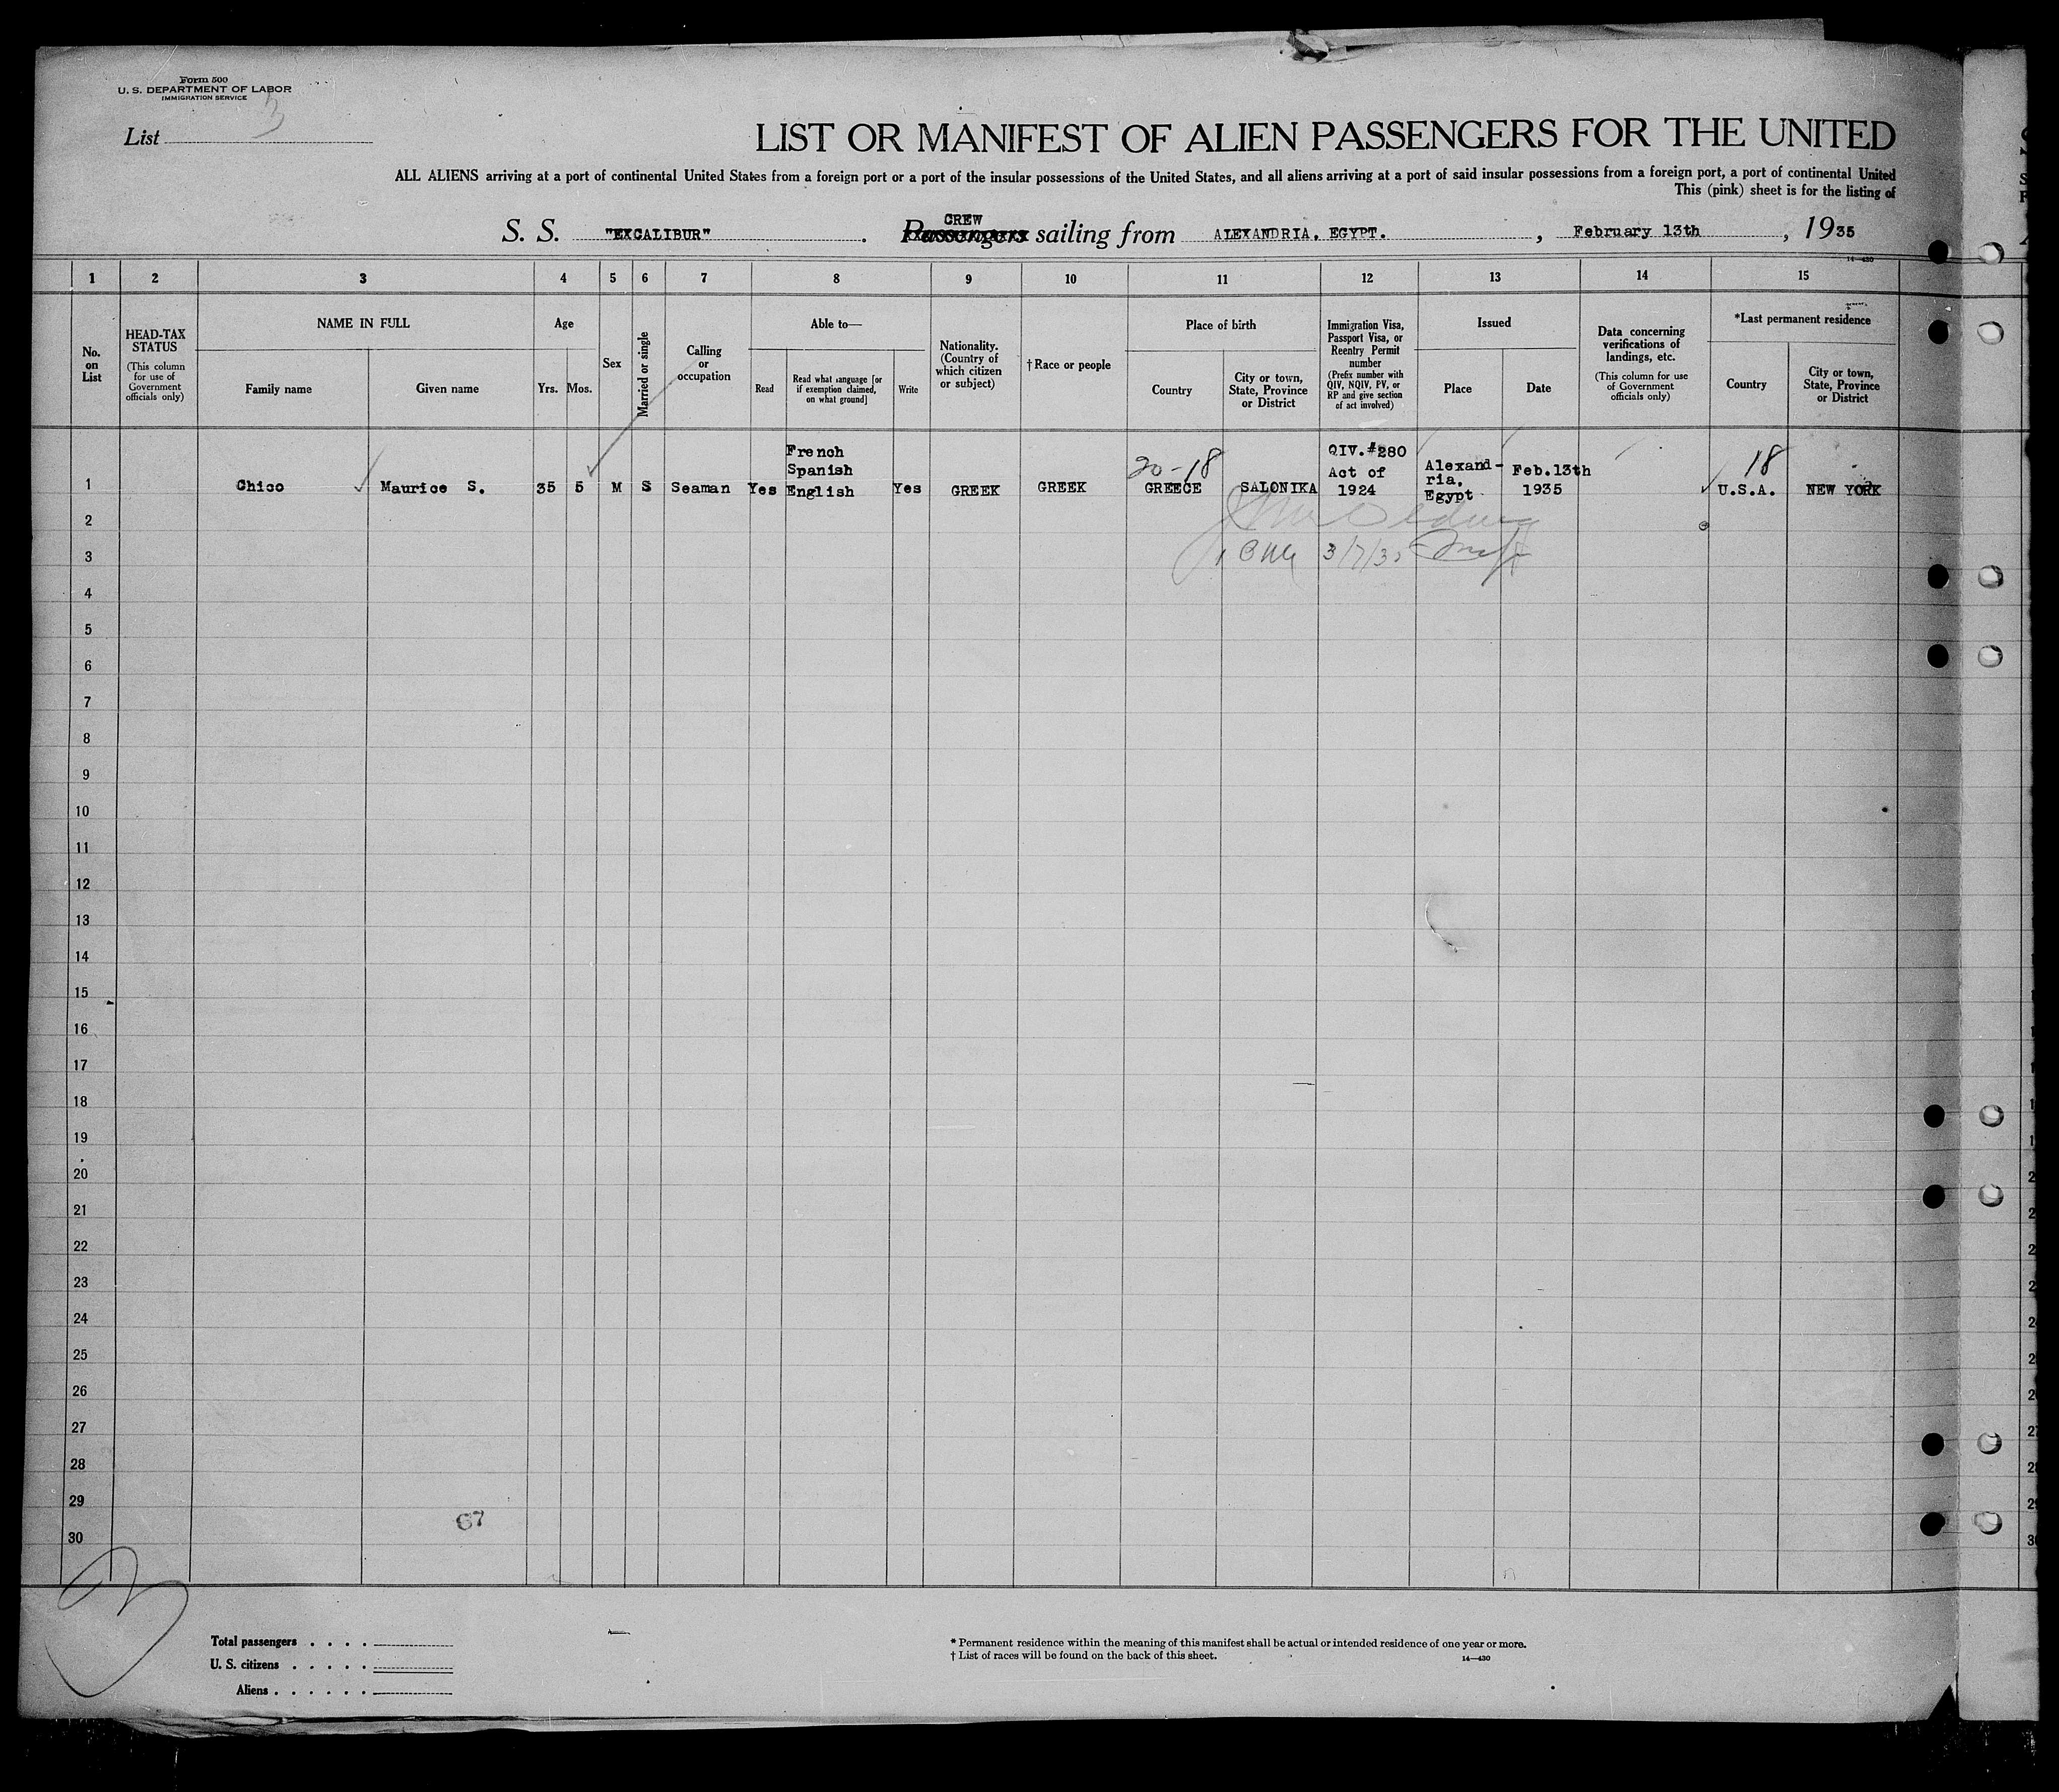 Form 500
U. S. DEPARTMENT OF LABOR
IMMIGRATION SERVICE
List 3
LIST OR MANIFEST OF ALIEN PASSENGERS FOR THE UNITED
ALL ALIENS arriving at a port of continental United States from a foreign port or a port of the insular possessions of the United States, and all aliens arriving at a port of said insular possessions from a foreign port, a port of continental United
This (pink) sheet is for the listing of
CREW
S. S. "EXCALIBUR" . Passengers sailing from ALEXANDRIA, EGYPT. , February 13th , 1935
14—430
1 2 3 4 5 6 7 8 9 10 11 12 13 14 15
No. on List
HEAD-TAX STATUS
(This column for use of Government officials only)
NAME IN FULL
Family name
Given name
Age
Yrs. Mos.
Sex
Married or single
Calling or occupation
Able to—
Read
Read what language [or if exemption claimed, on what ground]
Write
Nationality. (Country of which citizen or subject)
† Race or people
Place of birth
Country
City or town, State, Province or District
Immigration Visa, Passport Visa, or Reentry Permit number
(Prefix number with QIV, NQIV, PV, or RP and give section of act involved)
Issued
Place
Date
Data concerning verifications of landings, etc.
(This column for use of Government officials only)
*Last permanent residence
Country
City or town, State, Province or District
French
Spanish
English
20-18
QIV.#280
Act of
1924
Alexand-
ria,
Egypt
Feb.13th
1935
18
1 Chico Maurice S. 35 5 M S Seaman Yes Yes GREEK GREEK GREECE SALONIKA U.S.A. NEW YORK
2
3 3/7/35
4
5
6
7
8
9
10
11
12
13
14
15
16
17
18
19
20
21
22
23
24
25
26
27
28
29
67
30
3
Total passengers . . . .
U. S. citizens . . . . .
Aliens . . . . . .
* Permanent residence within the meaning of this manifest shall be actual or intended residence of one year or more.
† List of races will be found on the back of this sheet.
14—430